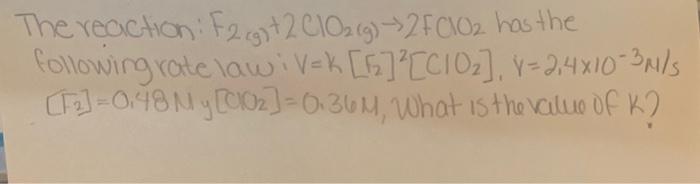 The reaction: F2(g)+2ClO2(g)→2FClO2 has the
following rate law: V=K [F2]²[ClO2], V=2,4x10⁻³M/s
[F2]=0,48M y [ClO2]=0.36M, What is the value of K?